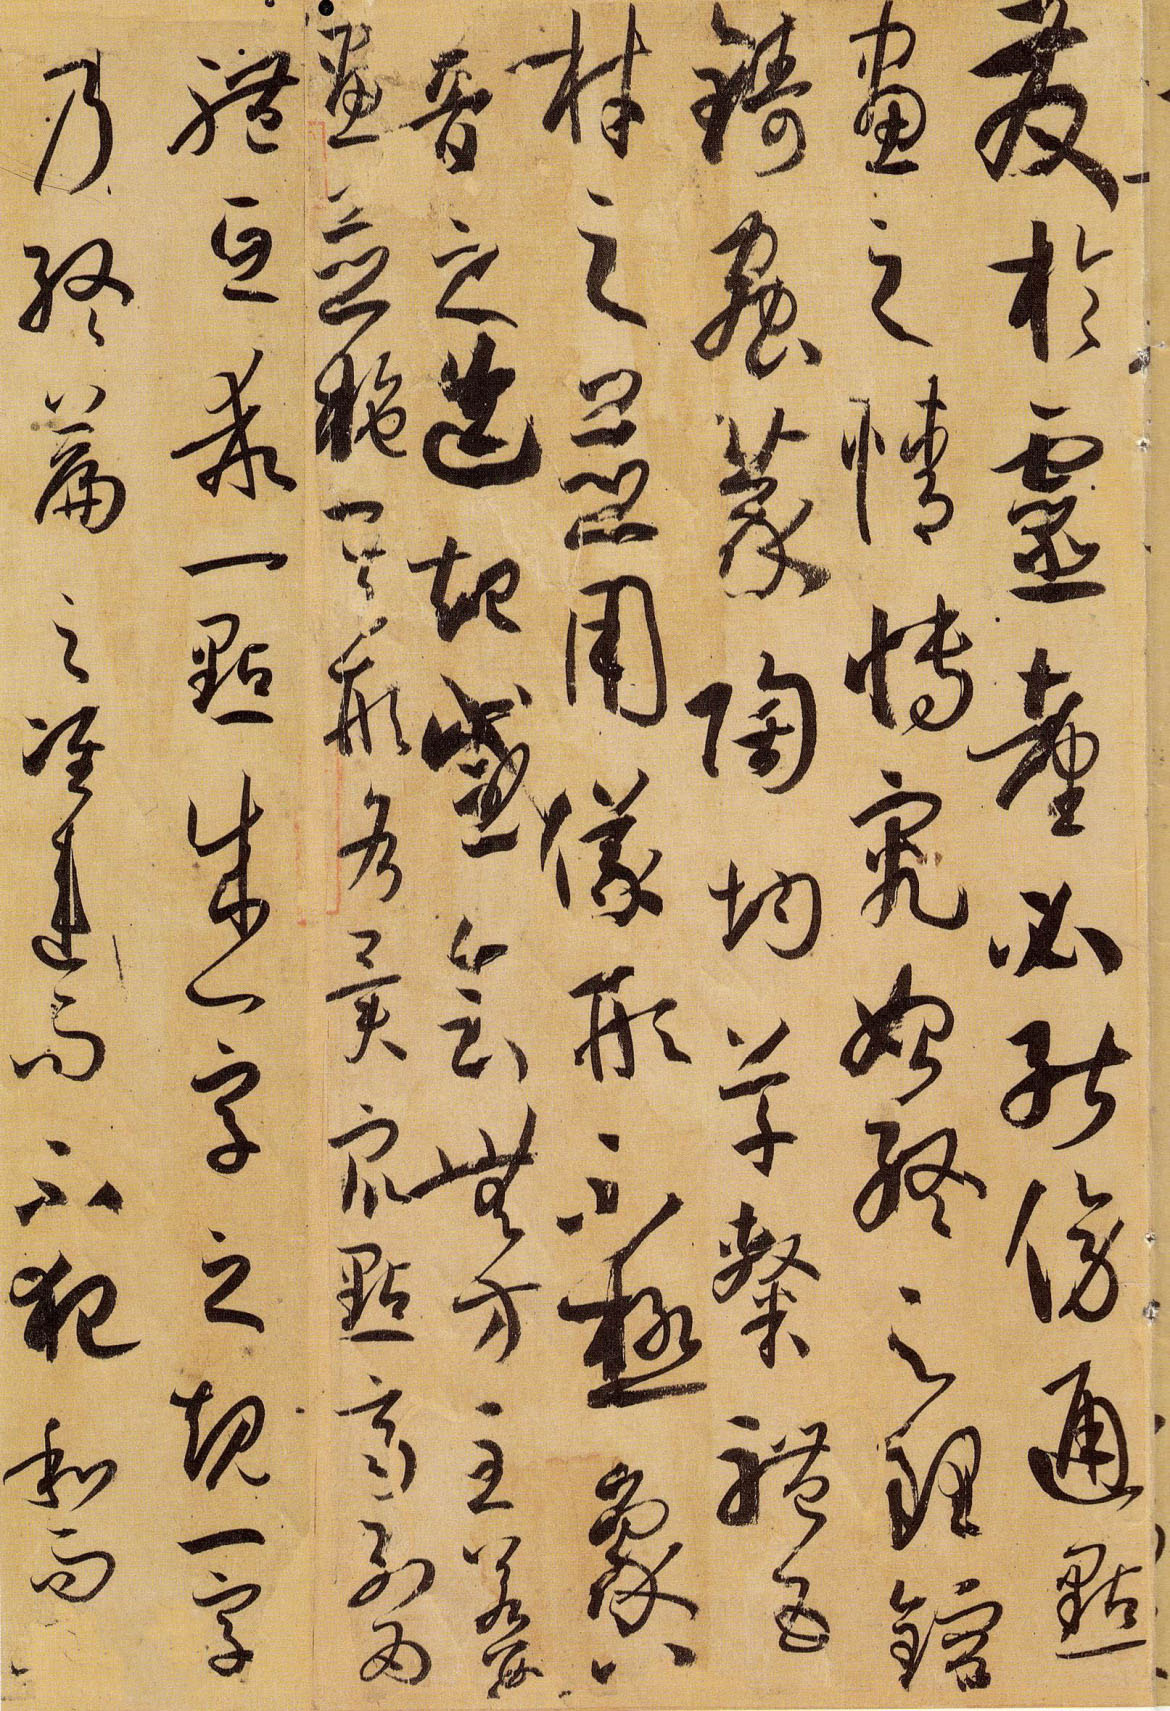 發於靈臺必能傍通點
畫之情博究始終之理鎔
鑄蟲篆陶均草隸體五
材之並用儀形不極象八
音之迭起感會無方至若數
畫並施其形各異衆點齊列爲
體互乖一點成一字之規一字
乃終篇之准違而不犯和而